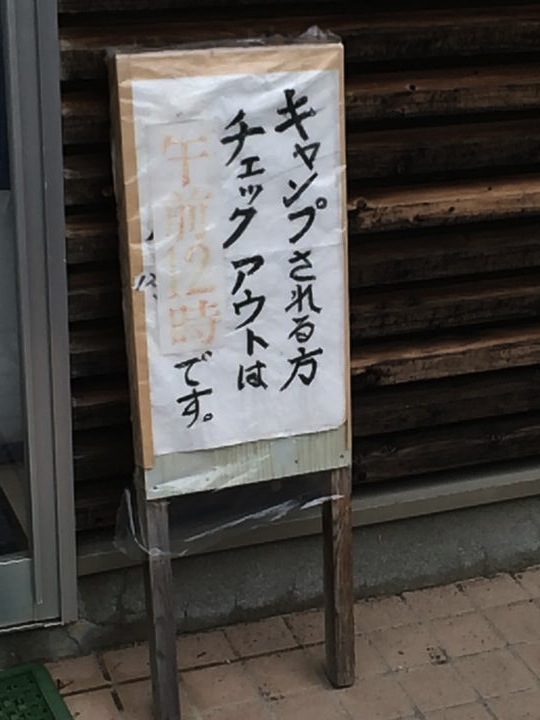 キャンプされる方
チェックアウトは
午前12時です。